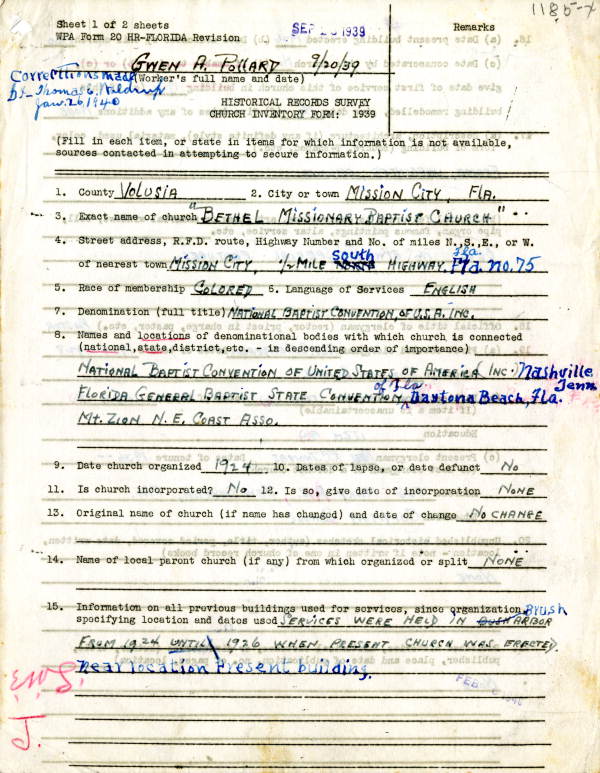 1185-7
Sheet 1 of 2 sheets
WPA Form 20 HR-FLORIDA Revision
SEP 20 1939
Remarks
Gwen A. Pollard 9/20/39
(Worker's full name and date)
Corrections made
by Thomas C. Waldrup
Jan. 26, 1940
HISTORICAL RECORDS SURVEY
CHURCH INVENTORY FORM: 1939
(Fill in each item, or state in items for which information is not available,
sources contacted in attempting to secure information.)
1. County VOLUSIA 2. City or town MISSION CITY, FLA.
3. Exact name of church "BETHEL MISSIONARY BAPTIST CHURCH"
4. Street address, R.F.D. route, Highway Number and No. of miles N.,S.,E., or W.
of nearest town MISSION CITY, 1/2 MILE South NORTH HIGHWAY, Fla. Fla no. 75
5. Race of membership COLORED 6. Language of Services ENGLISH
7. Denomination (full title) NATIONAL BAPTIST CONVENTION, OF U.S.A. INC.
8. Names and locations of denominational bodies with which church is connected
(national, state, district, etc. - in descending order of importance)
NATIONAL BAPTIST CONVENTION OF UNITED STATES OF AMERICA INC. Nashville Tenn
FLORIDA GENERAL BAPTIST STATE CONVENTION, of Fla. Daytona Beach, Fla.
MT. ZION N.E. COAST ASSO.
9. Date church organized 1924 10. Dates of lapse, or date defunct NO
11. Is church incorporated? NO 12. Is so, give date of incorporation NONE
13. Original name of church (if name has changed) and date of change NO CHANGE
14. Name of local parent church (if any) from which organized or split NONE
15. Information on all previous buildings used for services, since organization,
specifying location and dates used SERVICES WERE HELD IN BUSH Brush ARBOR
FROM 1924 UNTIL 1926 WHEN PRESENT CHURCH WAS ERECTED.
Near location Present building.
E.W.S.
J.